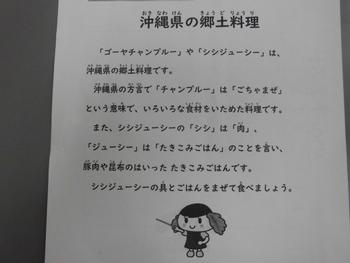 沖縄県の郷土料理
おき なわ けん きょう ど りょう り
「ゴーヤチャンプルー」や「シシジューシー」は、
沖縄県の郷土料理です。
沖縄県の方言で「チャンプルー」は「ごちゃまぜ」
という意味で、いろいろな食材をいためた料理です。
また、シシジューシーの「シシ」は「肉」、
「ジューシー」は「たきこみごはん」のことを言い、
豚肉や昆布のはいった たきこみごはんです。
シシジューシーの具とごはんをまぜて食べましょう。